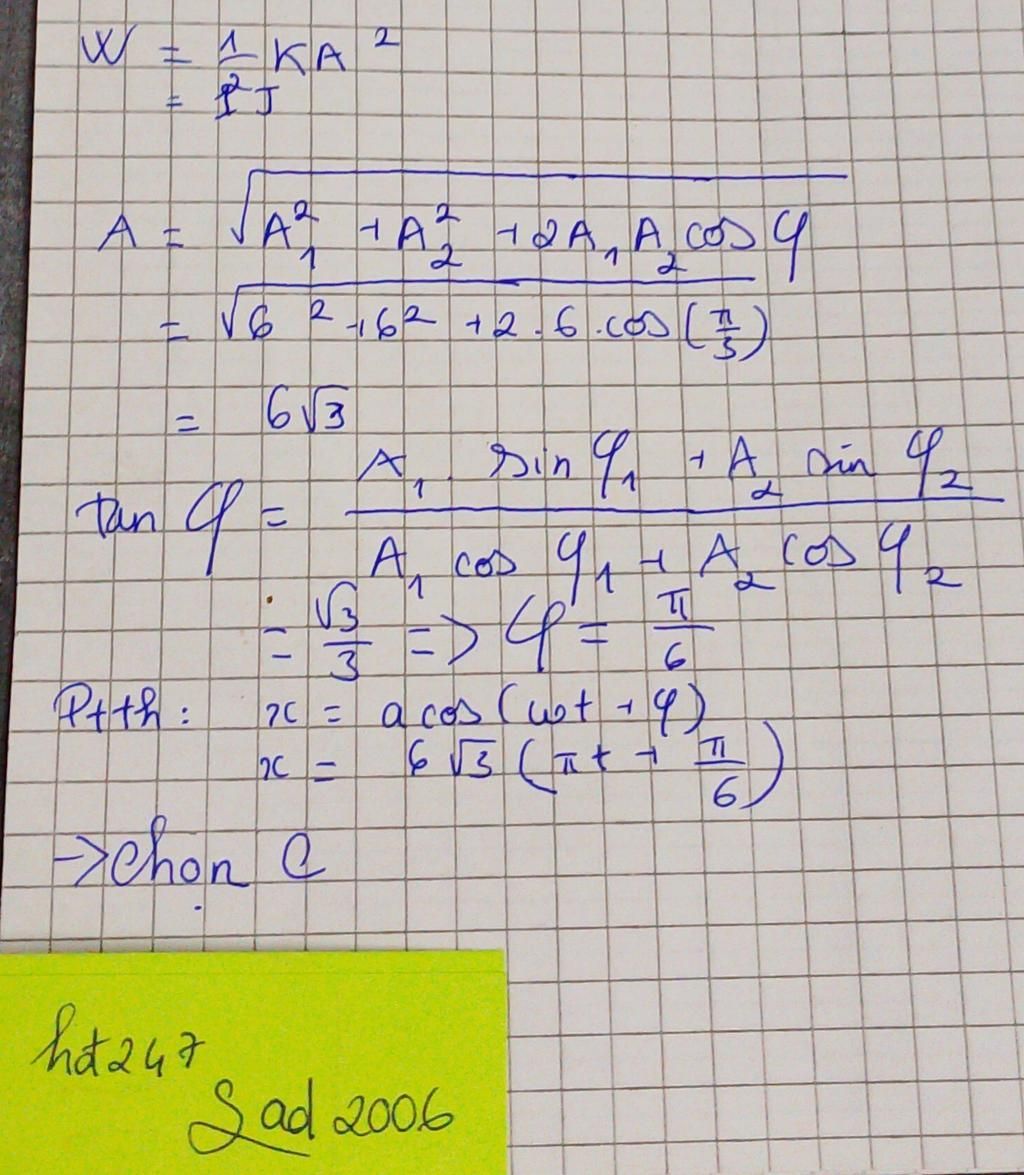 W = 1/2 KA²
= 2J
A = √(A₁² + A₂² + 2A₁A₂ cos φ)
= √(6² + 6² + 2.6.cos(π/3))
= 6√3
tan φ = (A₁. sin φ₁ + A₂ sin φ₂)/(A₁ cos φ₁ + A₂ cos φ₂)
= √3/3 => φ = π/6
Ptth: x = acos(ωt + φ)
x = 6√3(πt + π/6)
->chọn C
hdt247
Sad 2006